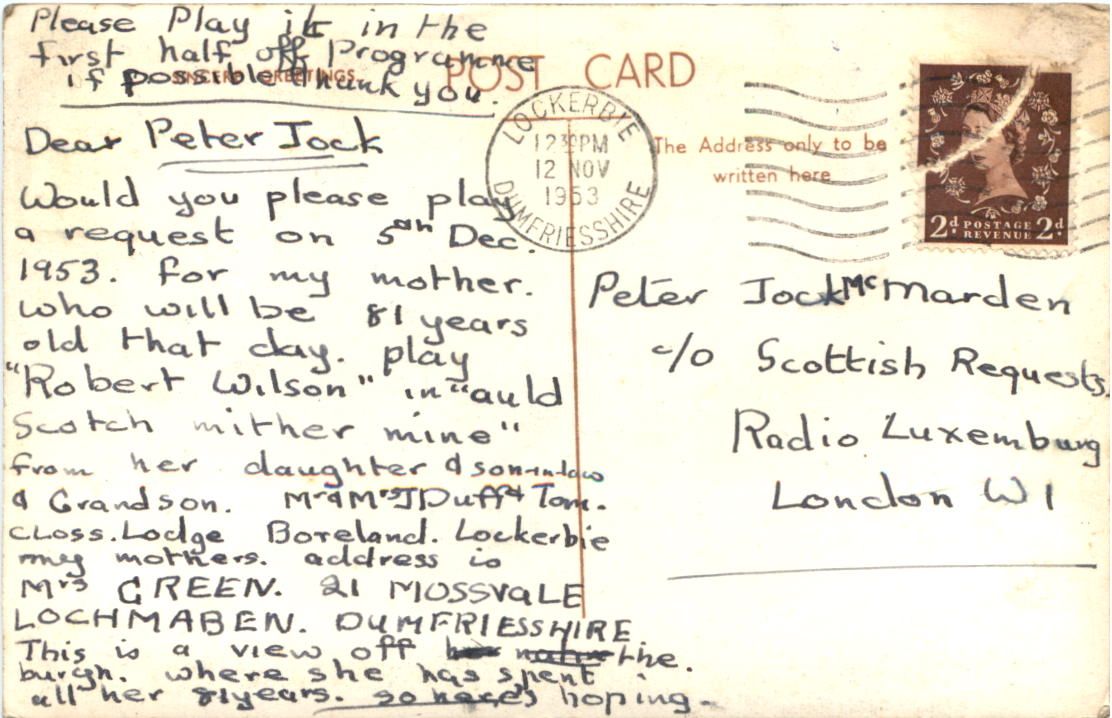 Please Play it in the
first half off Programme
if possible Thank you.
SINCERE GREETINGS
POST CARD
Dear Peter Jock
Would you please play
a request on 5th Dec.
1953. for my mother.
who will be 81 years
old that day. play
"Robert Wilson" in "auld
Scotch mither mine"
from her daughter & son-in-law
& Grandson. Mr & Mrs J Duff & Tom.
CLOSS. Lodge Boreland. Lockerbie
my mothers. address is
Mrs GREEN. 21 MOSSVALE
LOCHMABEN. DUMFRIESSHIRE
This is a view off the.
burgh. where she has spent
all her 81 years. so here's hoping.
LOCKERBIE
12 30 PM
12 NOV
1953
DUMFRIESSHIRE
The Address only to be
written here
2d POSTAGE REVENUE 2d
Peter Jock Mc Marden
c/o Scottish Requests.
Radio Luxemburg
London W1